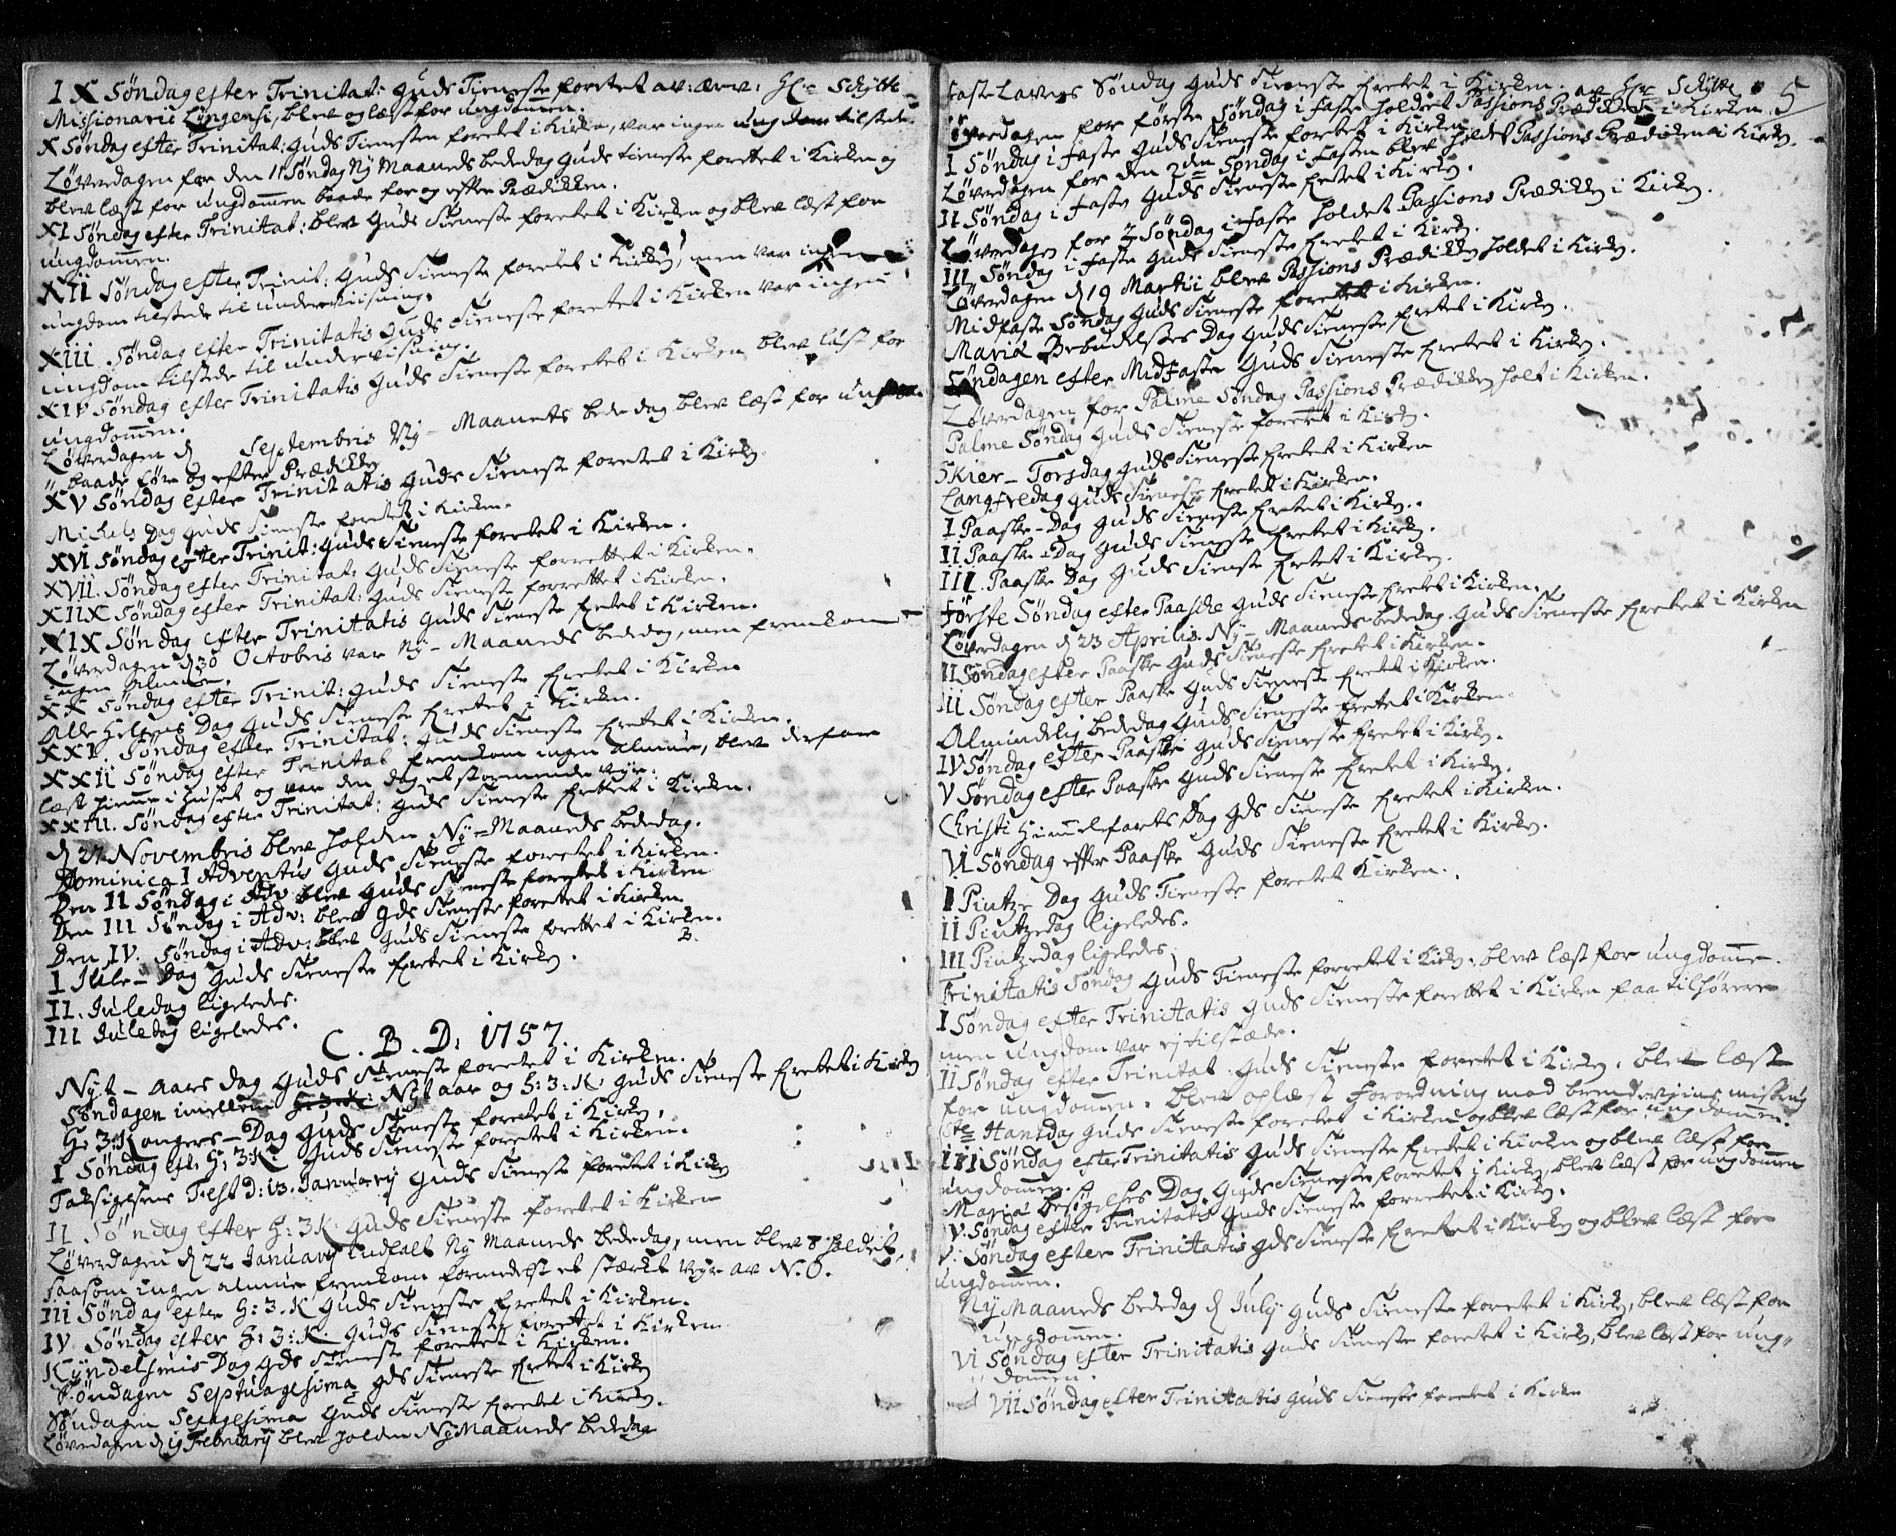 IX Søndag efter Trinitat: Guds Tieneste forretet av: Hr. Schÿtte
Missionarii Lÿngensi, blev og læst for ungdommen.
X Søndag efter Trinitat: Guds Tienesten foretet i Kirken, var ingen ungdom tilstede.
Løverdagen før den 11 Søndag Nÿ Maaneds bededag Guds tieneste forettet i Kirken og
blev læst for ungdommen baade for og efter Prædikken.
XI Søndag efter Trinitat: blev Guds Tieneste foretet i Kirken og blev læst for
ungdommen.
XII Søndag efter Trinit: Guds Tieneste foretet i Kirken, men var ingen
ungdom tilstede til underviisning.
XIII Søndag efter Trinitatis Guds Tieneste foretet i Kirken var ingen
ungdom tilstede til underviisning.
XIV Søndag efter Trinitatis Guds Tieneste foretet i Kirken blev læst for
ungdommen.
Løverdagen d Septembris Nÿ-Maanets bededag blev læst for ungdom
baade før og efter Prædikken
XV Søndag efter Trinitatis Guds Tieneste foretet i Kirken
Michels Dag Guds Tieneste foretet i Kirken.
XVI Søndag efter Trinit: Guds Tieneste foretet i Kirken.
XVII. Søndag efter Trinitat: Guds Tieneste forrettet i Kirken.
XIIX Søndag efter Trinitat: Guds Tieneste forrettet i Kirken.
XIX Søndag efter Trinitatis Guds Tieneste fretet i Kirken.
Løverdagen d 30 Octobris var Nÿ-Maaneds bededag, men fremkom
ingen Almue.
XX Søndag efter Trinit: Guds Tieneste fretet i Kirken
Alle Helgens Dag Guds Tieneste fretet i Kirken.
XXI. Søndag efter Trinitat: Guds Tieneste fretet i Kirken.
XXII Søndag efter Trinitat fremkom ingen almue, blev derfore
læst hiemme i Huset og var den dag et stormende veÿr.
XXIII. Søndag efter Trinitat: Guds Tieneste frettet i Kirken.
d 27 Novembris blev holden Nÿ-Maaneds bededag.
Dominica I Adventus Guds Tieneste forettet i Kirken.
Den II Søndag i Adv blev Guds Tieneste foretet i Kirken
Den III Søndag i Adv: blev Gds Tieneste foretet i Kirken
Den IV. Søndag i Adv: blev Guds Tieneste forettet i Kirken.
I Jule-Dag Guds Tieneste fretet i Kirken.
II. Juledag ligeledes.
III Juledag ligeledes.
C. B. D: 1757.
Nÿt-aars dag Guds Tieneste foretet i Kirken.
Søndagen imellem Nÿt aar og H: 3: K. Guds Tieneste fretet i Kirken
H: 3: Kongers-Dag Guds Tieneste foretet i Kirken.
I Søndag eft. H: 3: K: Guds Tieneste foretet i Kirken.
Taksigelsens Fest D: 13. Januarÿ Guds Tieneste foretet i Kirken
II. Søndag efter H: 3 K: Guds Tieneste foretet i Kirken
Løverdagen d 22 Januarÿ indfalt Nÿ Maaneds bededag, men blev holdet,
saasom ingen almue fremkom formedelst et stærkt veÿr av N. O.
III Søndag efter H: 3. K Guds Tieneste fretet i Kirken.
IV. Søndag efter H: 3: K. Guds Tieneste forettet i Kirken
Kÿndelsmis Dag Gds Tieneste foretet i Kirken.
Søndagen Septuagesima Gds Tieneste fretet i Kirken
Søndagen Sexagesima Guds Tieneste fretet i Kirken.
Løverdagen d 19 Februarÿ blev holden Nÿ Maaneds bededag
Faste Lavens Søndag Guds Tieneste fretet i Kirken av Hr Schÿtte 5
Løverdagen for første Søndag i Faste holdet Passions Prædiken i Kirken.
I Søndag i Faste Guds Tieneste foretet i Kirken
Løverdagen for den 2den Søndag i Fasten blev holdet Passions Prædiken i Kirken.
II Søndag i Faste Guds Tieneste fretet i Kirken.
Løverdagen for 3 Søndag i Faste holdet Passions Prædikken i Kirken.
III Søndag i Faste Guds Tieneste fretet i Kirken.
Løverdagen d 19 Martii blev Passions Prædikken holdet i Kirken.
Midfaste Søndag Guds Tieneste foretet i Kirken.
Mariæ Bebudelses Dag Guds Tieneste fretet i Kirken.
Søndagen efter Midfaste Guds Tieneste fretet i Kirken.
Løverdagen for Palme Søndag Passions Prædikken holt i Kirken.
Palme Søndag Guds Tieneste forrettet i Kirken.
Skier-Torsdag Guds Tieneste fretet i Kirken
Langfredag Guds Tieneste fretet i Kirken.
I Paaske-Dag Guds Tieneste fretet i Kirken.
II Paaske Dag Guds Tieneste fretet i Kirken.
III. Paaske Dag Guds Tieneste fretet i Kirken.
Første Søndag efter Paaske Guds Tieneste fretet i Kirken.
Løverdagen d 23 Aprilis. Nÿ-Maaneds bededag Guds Tieneste fretet i Kirken
II Søndag efter Paaske Guds Tieneste fretet i Kirken.
III Søndag efter Paaske Guds Tieneste fretet i Kirken.
Almindelig bededag Guds Tieneste fretet i Kirken
IV Søndag efter Paaske Guds Tieneste fretet i Kirken.
V Søndag efter Paaske Guds Tieneste fretet i Kirken.
Christi Himmelfarts Dag Gds Tieneste fretet i Kirken.
VI Søndag efter Paaske Guds Tieneste fretet i Kirken.
I Pintze Dag Guds Tieneste foretet Kirken.
II Pintzedag ligeledes.
III Pintzedag ligeledes.
Trinitatis Søndag Guds Tieneste forretet i Kirken. blev læst for ungdomme.
I Søndag efter Trinitatis Guds Tieneste forettet i Kirken faa tilhørere
men ungdom var ej tilstæde.
II Søndag efter Trinitat. Guds Tieneste foretet i Kirken. blev læst
for ungdommen. blev oplæst Forordning mod brendeviins misbrug
Ste Hansdag Guds Tieneste foretet i Kirken og blev læst for ungdommen.
III Søndag efter Trinitatis Guds Tieneste fretet i Kirken og blev læst for
ungdommen.
Mariæ besøgelses Dag Guds Tieneste foretet i Kirken, blev læst for ungdommen
V. Søndag efter Trinitatis Guds Tieneste forretet i Kirken.
V. Søndag efter Trinitatis Gds Tieneste fretet i Kirken og blev læst for
ungdommen.
Nÿ Maaneds bededag d Julÿ Guds Tieneste foretet i Kirken, blev læst for
ungdommen.
VI Søndag efter Trinitatis Guds Tieneste foretet i Kirken, blev læst for ung-
dommen.
VII Søndag efter Trinitatis Guds Tieneste foretet i Kirken